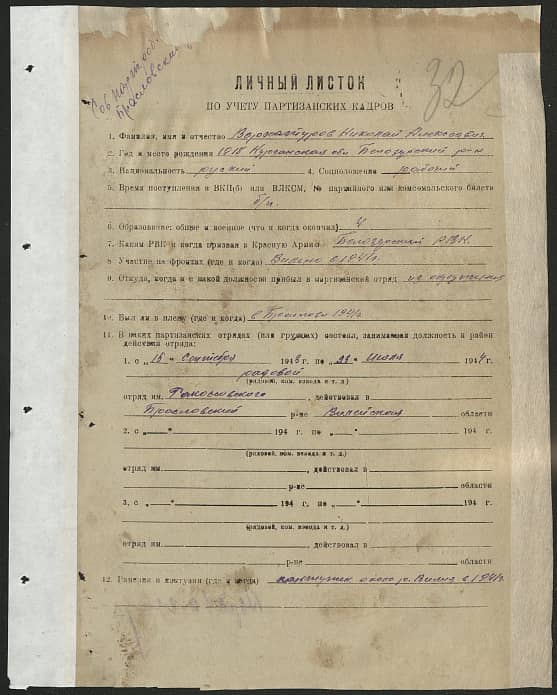 32
ЛИЧНЫЙ ЛИСТОК
ПО УЧЕТУ ПАРТИЗАНСКИХ КАДРОВ
1. Фамилия, имя и отчество Николай Алексеевич
2. Год и место рождения 1918 Курганская обл. Белозерский р-н
3. Национальность русский 4. Соцположение рабочий
5. Время поступления в ВКП(б) или ВЛКСМ, № партийного или комсомольского билета
б/п.
6. Образование: общее и военное (что и когда окончил) 4
7. Каким РВК и когда призван в Красную Армию Белозерский РВК.
8. Участие на фронтах (где и когда) в 1941г.
9. Откуда, когда и с какой должности прибыл в партизанский отряд из окружения
10. Был ли в плену (где и когда) 1941г.
11. В каких партизанских отрядах (или группах) состоял, занимаемая должность и район
действия отряда:
1. с „15 " Сентября 194 3 г. по „ " Июля 194 4 г.
рядовой
(рядовой, ком. взвода и т. д.)
отряд им. , действовал в
Браславский р-не Вилейская области
2. с „ " 194 г. по „ " 194 г.
(рядовой, ком. взвода и т. д.)
отряд им. , действовал в
р-не области
3. с „ " 194 г. по „ " 194 г.
(рядовой, ком. взвода и т. д.)
отряд им. , действовал в
р-не области
12. Ранения и контузии (где и когда) около 1941г.